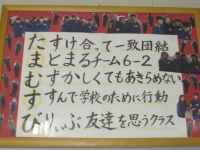 たすけ合って一致団結
まとまるチーム6-2
むずかしくてもあきらめない
すすんで学校のために行動
びりぃぶ友達を思うクラス